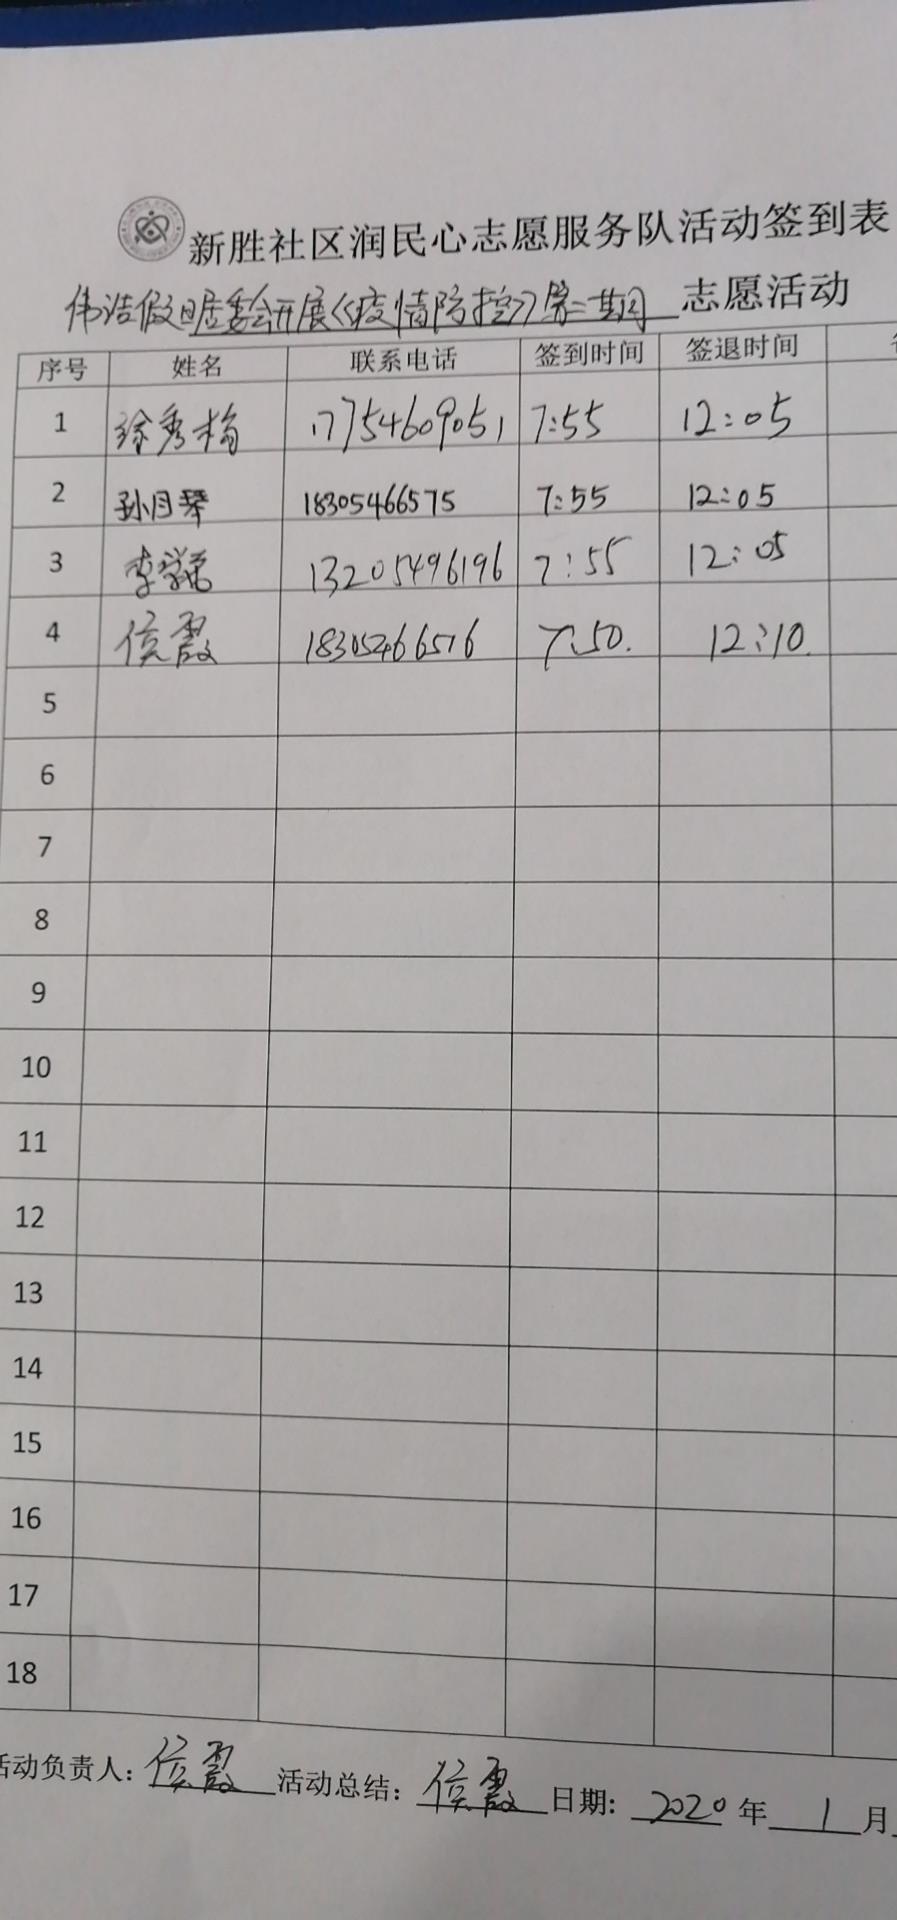 新胜社区润民心志愿服务队活动签到表
伟浩假日居委会开展《疫情防控》第二期 志愿活动
序号 姓名 联系电话 签到时间 签退时间
1 徐秀梅 17754609051 7:55 12:05
2 孙月琴 18305466575 7:55 12:05
3 李 13205496196 7:55 12:05
4 侯霞 18305466576 7:50. 12:10.
5
6
7
8
9
10
11
12
13
14
15
16
17
18
活动负责人:侯霞 活动总结:侯霞 日期:2020年1月